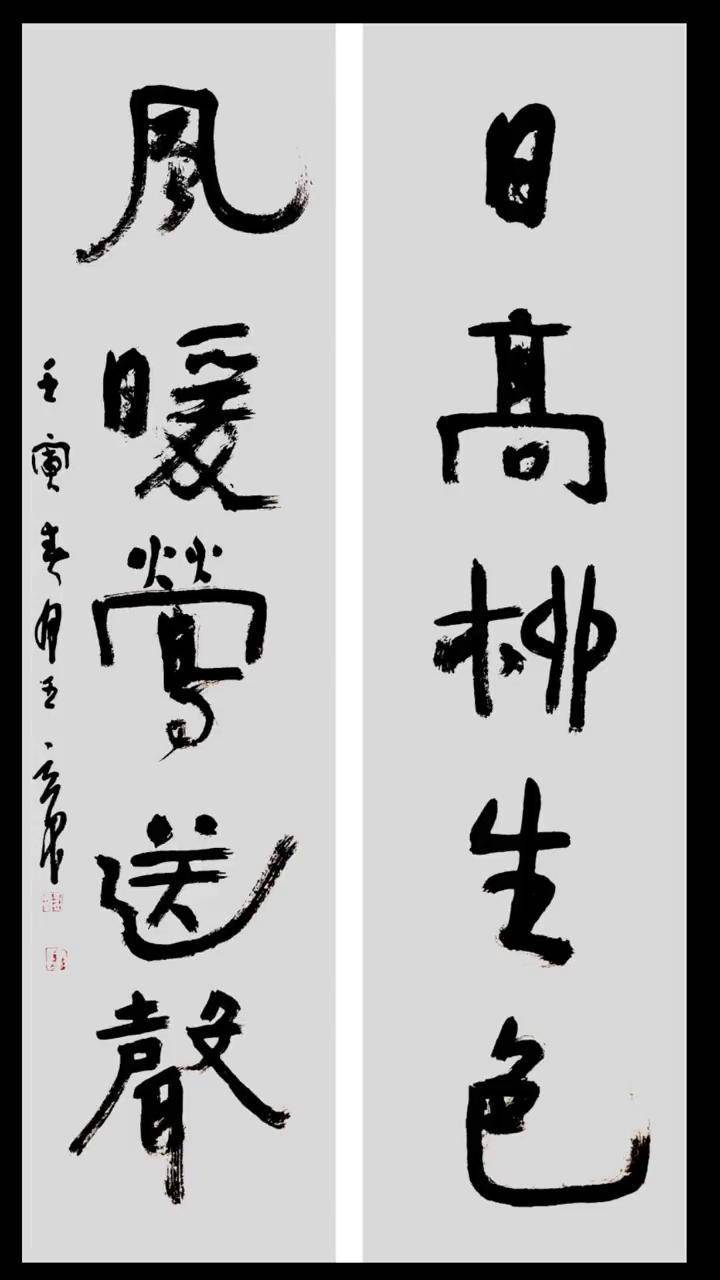 日高柳生色
風暖鶯送聲
壬寅春月王